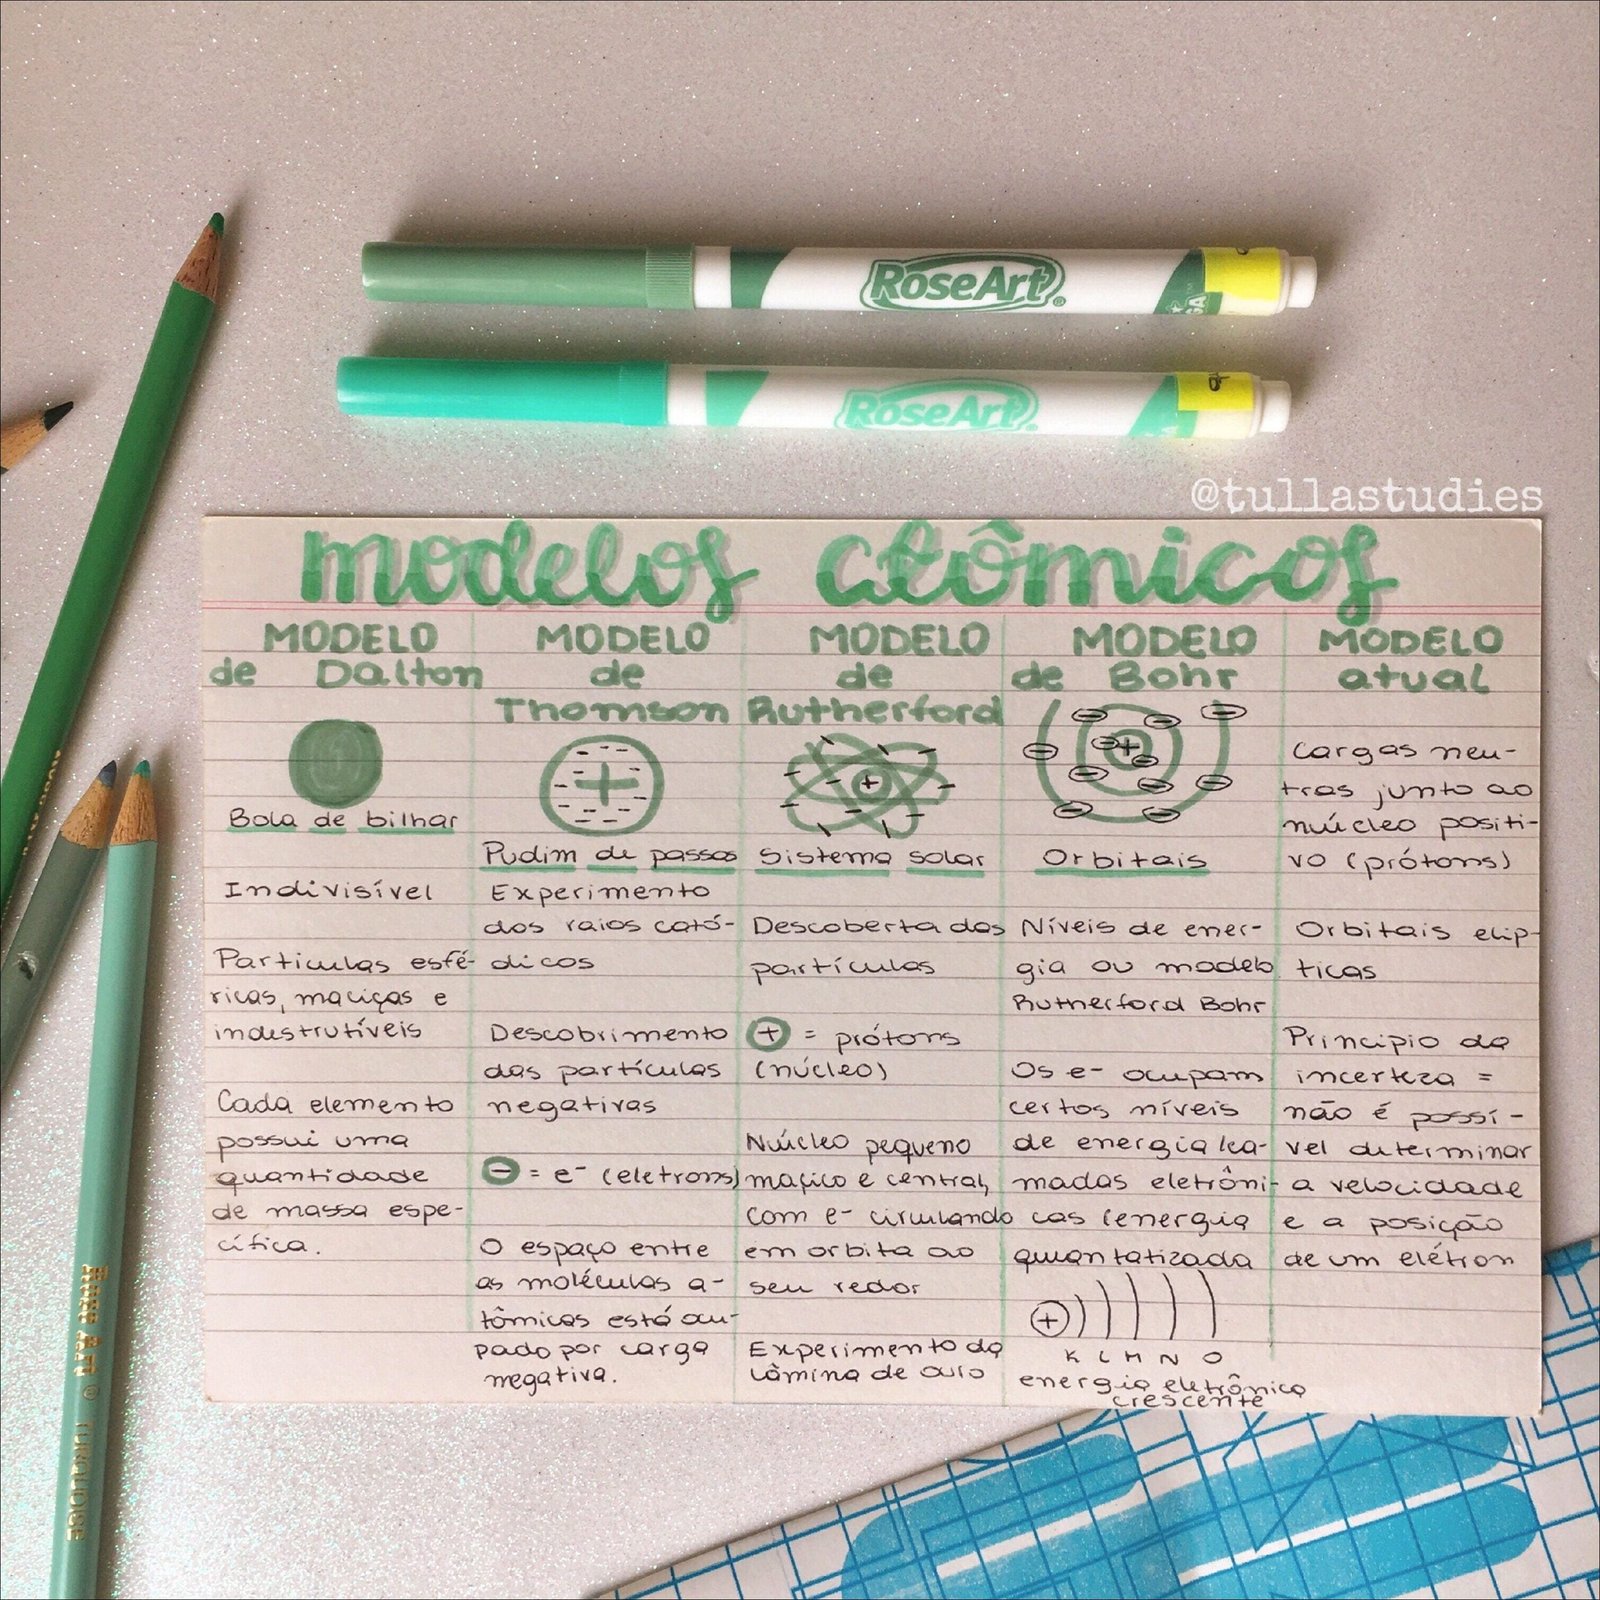 RoseArt
RoseArt
@tullastudies
modelos atômicos
MODELO
de Dalton
Bola de bilhar
Indivisível
Particulas esfé-
ricas, maciças e
indestrutíveis
Cada elemento
possui uma
quantidade
de massa espe-
cífica.
MODELO
de
Thomson
+
Pudim de passas
Experimento
dos raios cató-
dicos
Descobrimento
das partículas
negativas
- = e- (eletrons)
O espaço entre
as moléculas a-
tômicas está ocu-
pado por carga
negativa.
MODELO
de
Rutherford
+
Sistema solar
Descoberta das
partículas
+ = prótons
(núcleo)
Núcleo pequeno
maçico e central,
com e- circulando
em orbita ao
seu redor
Experimento da
lâmina de ouro
MODELO
de Bohr
+
Orbitais
Níveis de ener-
gia ou modelo
Rutherford Bohr
Os e- ocupam
certos níveis
de energia (ca-
madas eletrôni-
cas (energia
quantatizada
+
K L M N O
energia eletrônica
crescente
MODELO
atual
Cargas neu-
tras junto ao
núcleo positi-
vo (prótons)
Orbitais elip-
ticas
Principio da
incerteza =
não é possí-
vel determinar
a velocidade
e a posição
de um elétron
Rose Art © TURQUOISE